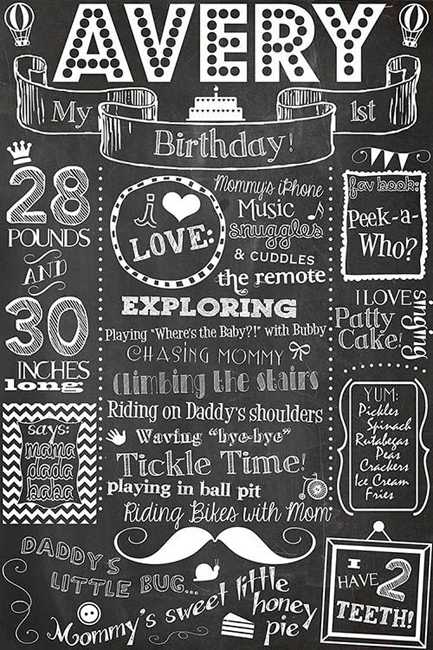 AVERY
My 1st
Birthday!
28
POUNDS
AND
30
INCHES
long
says:
mama
dada
baba
i
LOVE:
Mommy's iPhone
Music
snuggles
& CUDDLES
the remote
EXPLORING
Playing "Where's the Baby?!" with Bubby
CHASING MOMMY
Climbing the stairs
Riding on Daddy's shoulders
Waving "bye-bye"
Tickle Time!
playing in ball pit
Riding Bikes with Mom
fav book:
Peek-a-
Who?
I LOVE
singing
Patty
Cake!
YUM:
Pickles
Spinach
Rutabegas
Peas
Crackers
Ice Cream
Fries
DADDY'S
LITTLE BUG...
Mommy's sweet little
honey
pie
I
HAVE 2
TEETH!